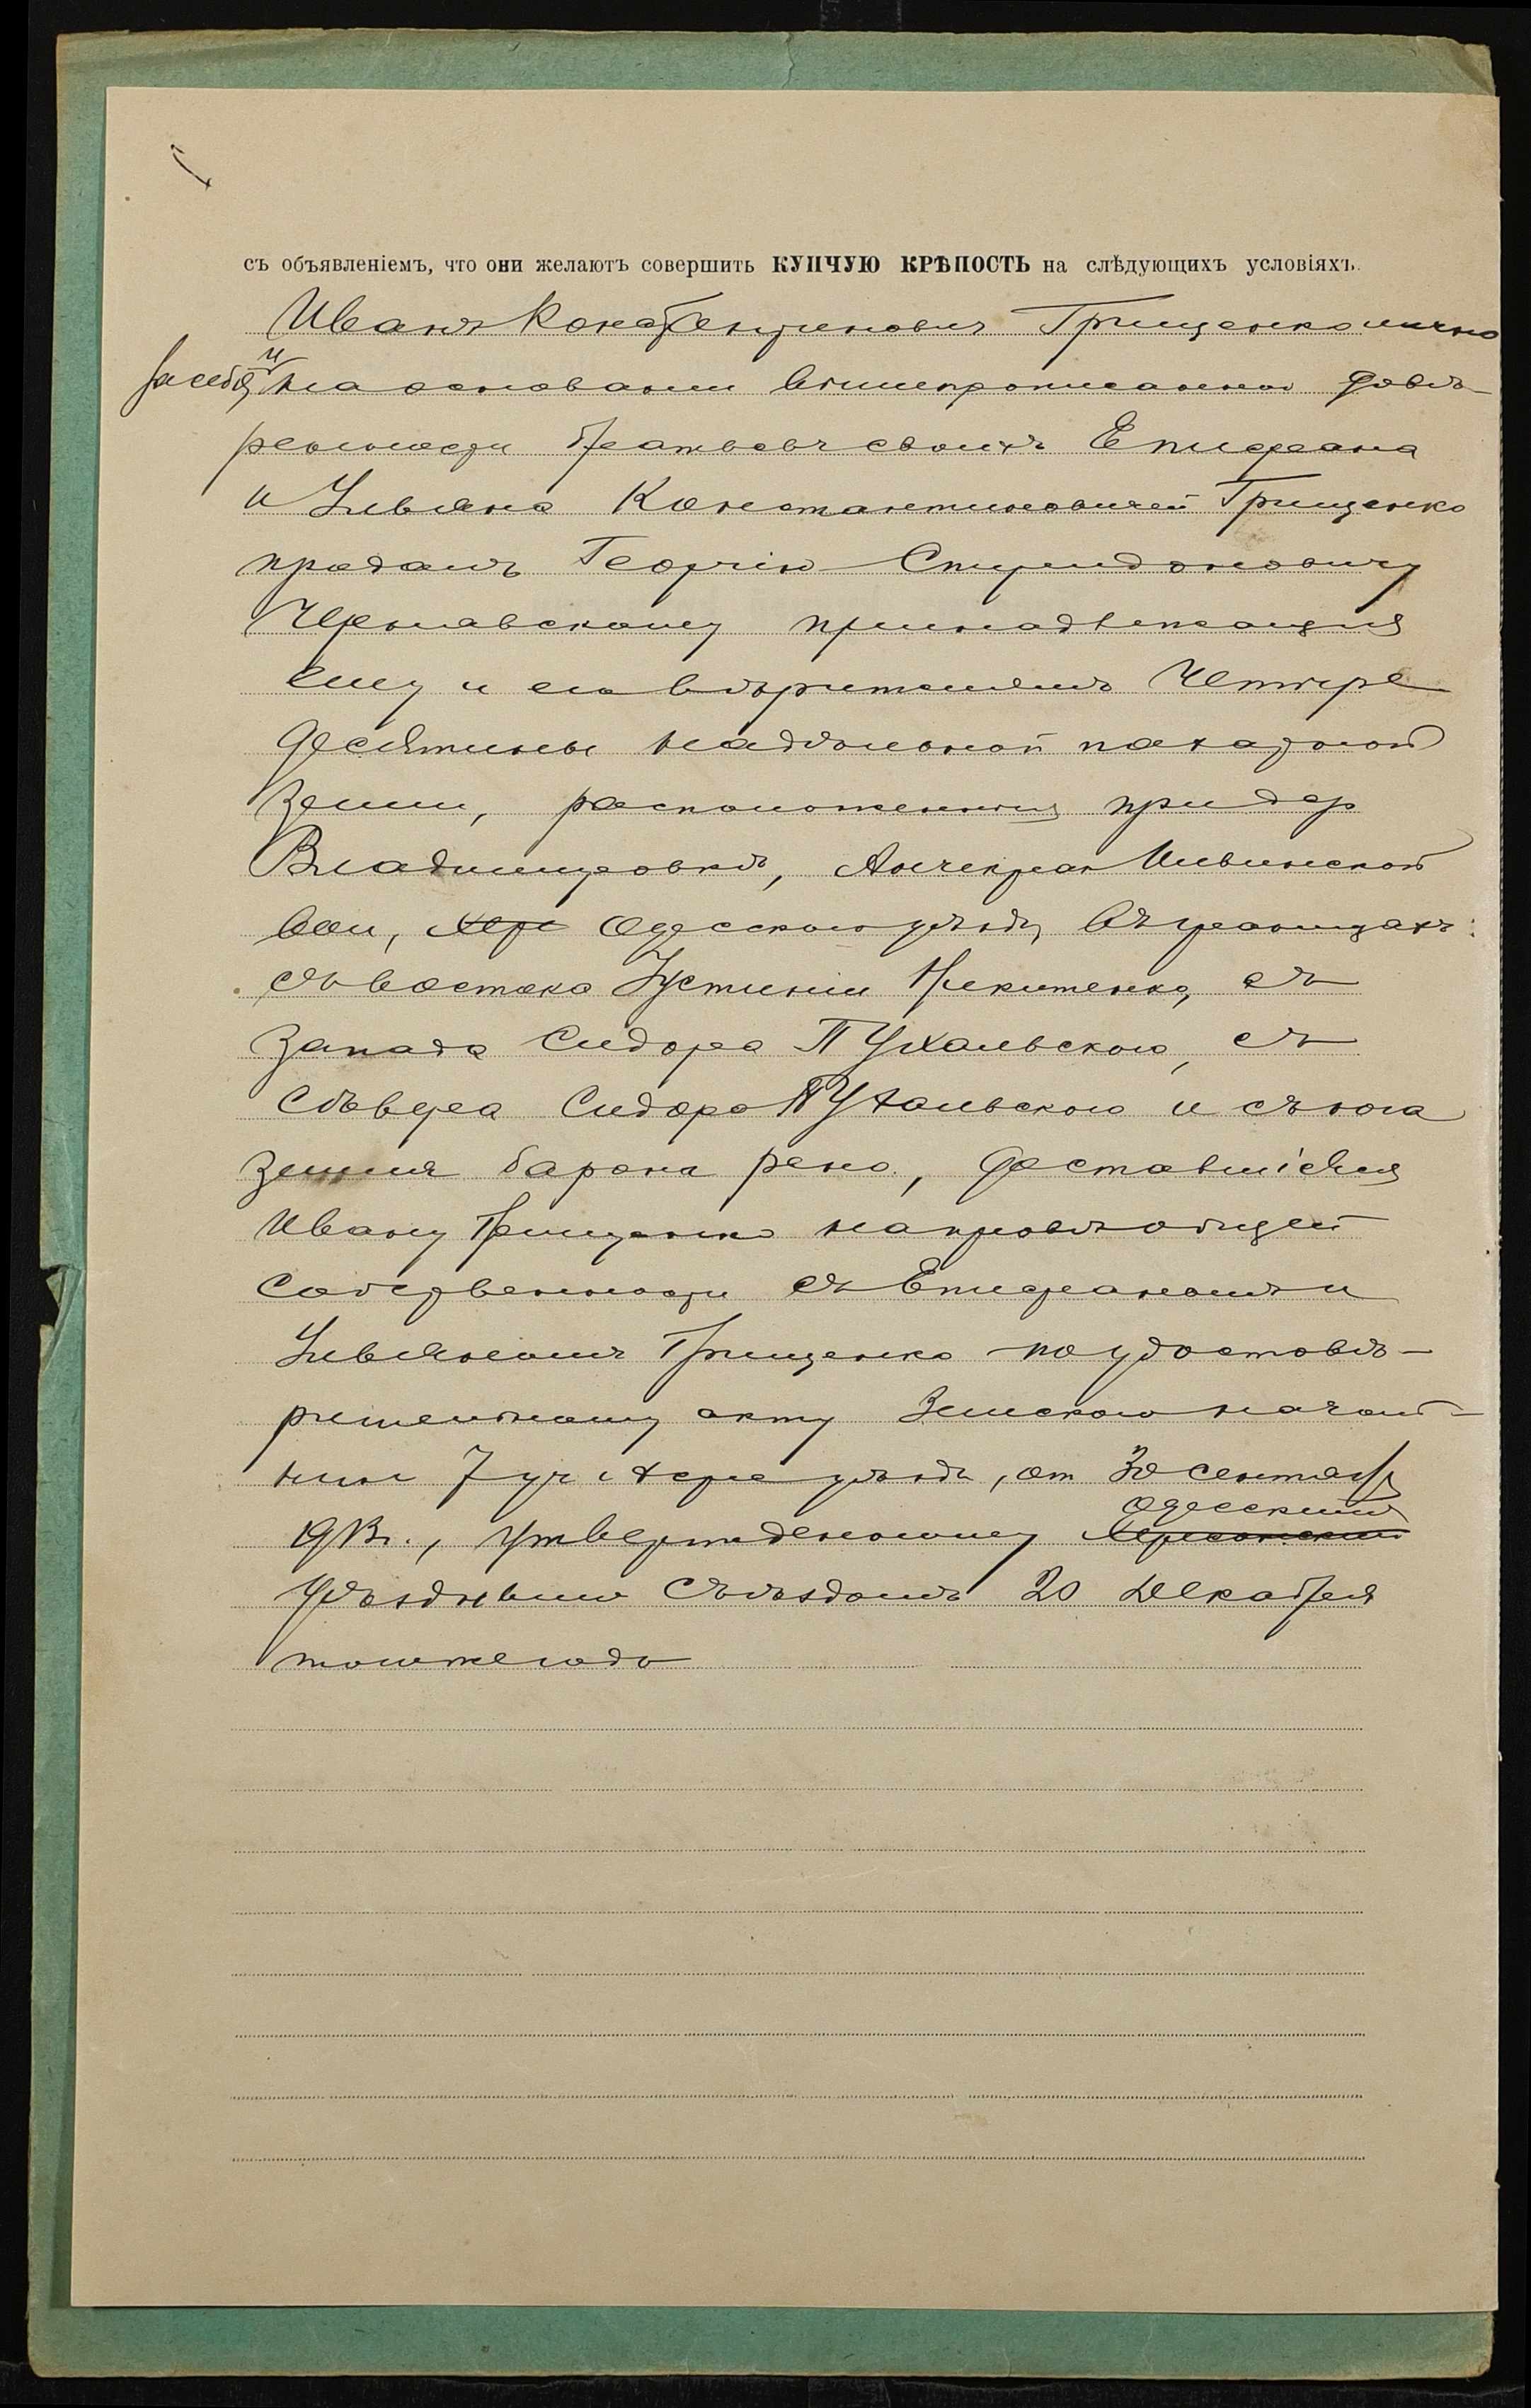 съ объявленіемъ, что они желаютъ совершить КУПЧУЮ КРѢПОСТЬ на слѣдующихъ условіяхъ.
Иванъ Константиновичъ Грищенко лично
за себя и на основаніи вышепрописанной довѣ-
ренности братьевъ своихъ Епифана
и Ульяна Константиновичей Грищенко
продалъ Георгію Спиридоновичу
Чернявскому принадлежащія
ему и его вѣрителямъ четыре
десятины надѣльной пахатной
земли, расположенныя при дер
Владимировкѣ, Анчекрак Ильинской
вол, Хер Одесского уѣзда, въ границахъ:
съ востока Устиніи Никитенко, съ
запада Сидора Пухальского, съ
сѣвера Сидора Пухальского и съ юга
земля барона рено, доставшіяся
Ивану Грищенко на правѣ общей
собственности съ Епифаномъ и
Ульяномъ Грищенко по удостовѣ-
рительному акту Земского началь-
ника 7 уч Херс уѣзда, от 30 сентября
1913 г., утвержденному Херсонским Одесским
Уѣзднымъ Съѣздомъ 20 декабря
того же года